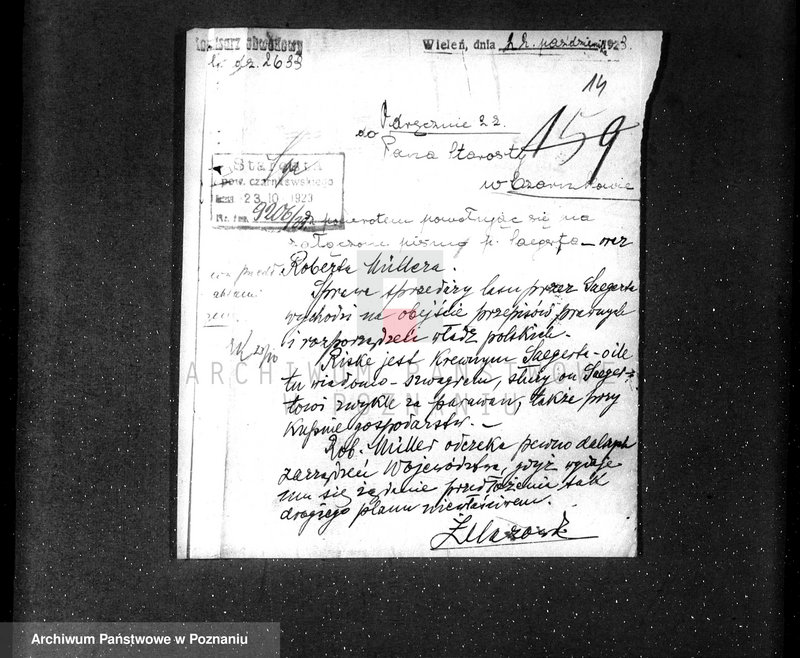 Komisarz obwodowy
Wieleń, dnia 22. październ. 1923.
L. dz. 2633
14
Odręcznie 22.
159
do Pana Starosty
w Czarnkowie
Starosta
pow. czarnkowskiego
23.10.1923
9206/23
z powrotem powołując się na
załączone pismo p. Saegerta – oraz
Roberta Müllera.
Sprawa sprzedaży lasu przez Saegerta
wychodzi na obejście przepisów prawnych
i rozporządzeń władz polskich.
Riske jest krewnym Saegerta – o ile
tu wiadomo – szwagrem, służy on Saeger-
towi zwykle za parawan, także przy
kupnie gospodarstw. –
Rob. Müller odczeka pewno dalszych
zarządzeń Województwa, gdyż wydaje
mu się żądanie przedłożenia tak
drogiego planu niewłaściwem.
ARCHIWUM PAŃSTWOWE
W POZNANIU
Archiwum Państwowe w Poznaniu